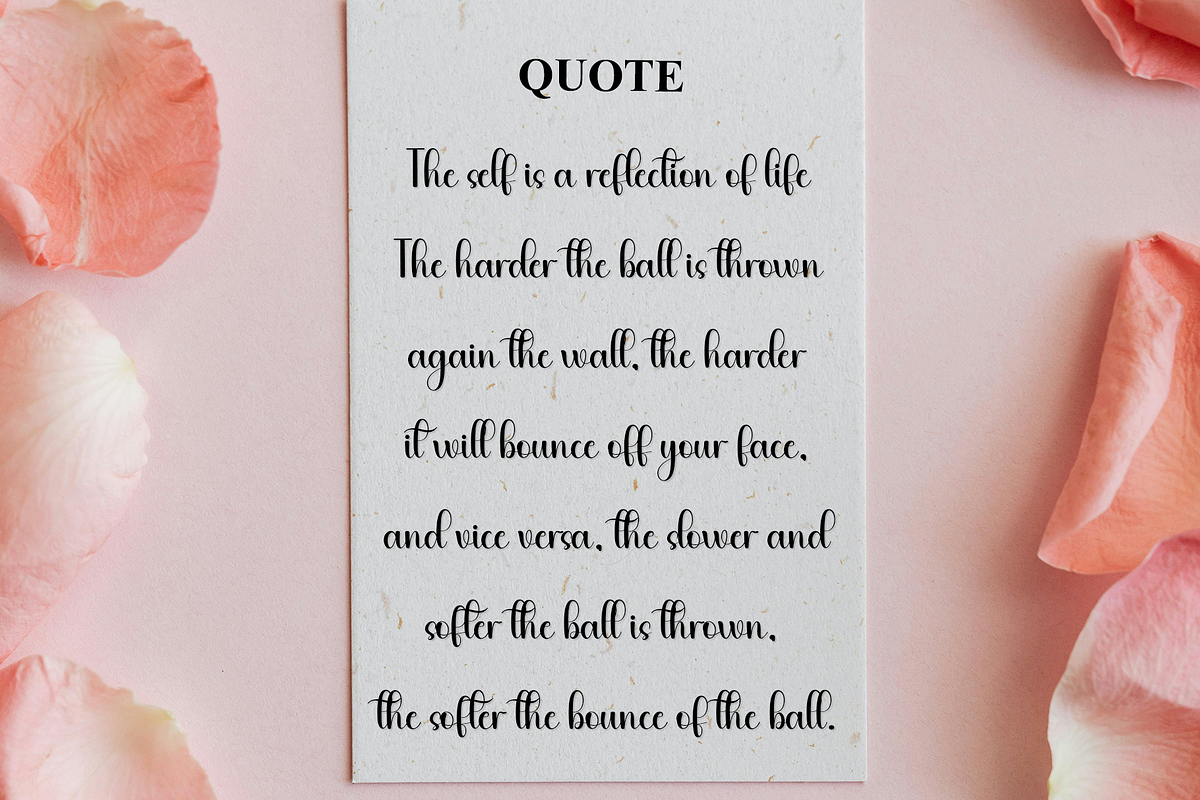 QUOTE
The self is a reflection of life
The harder the ball is thrown
again the wall, the harder
it will bounce off your face,
and vice versa, the slower and
softer the ball is thrown,
the softer the bounce of the ball.